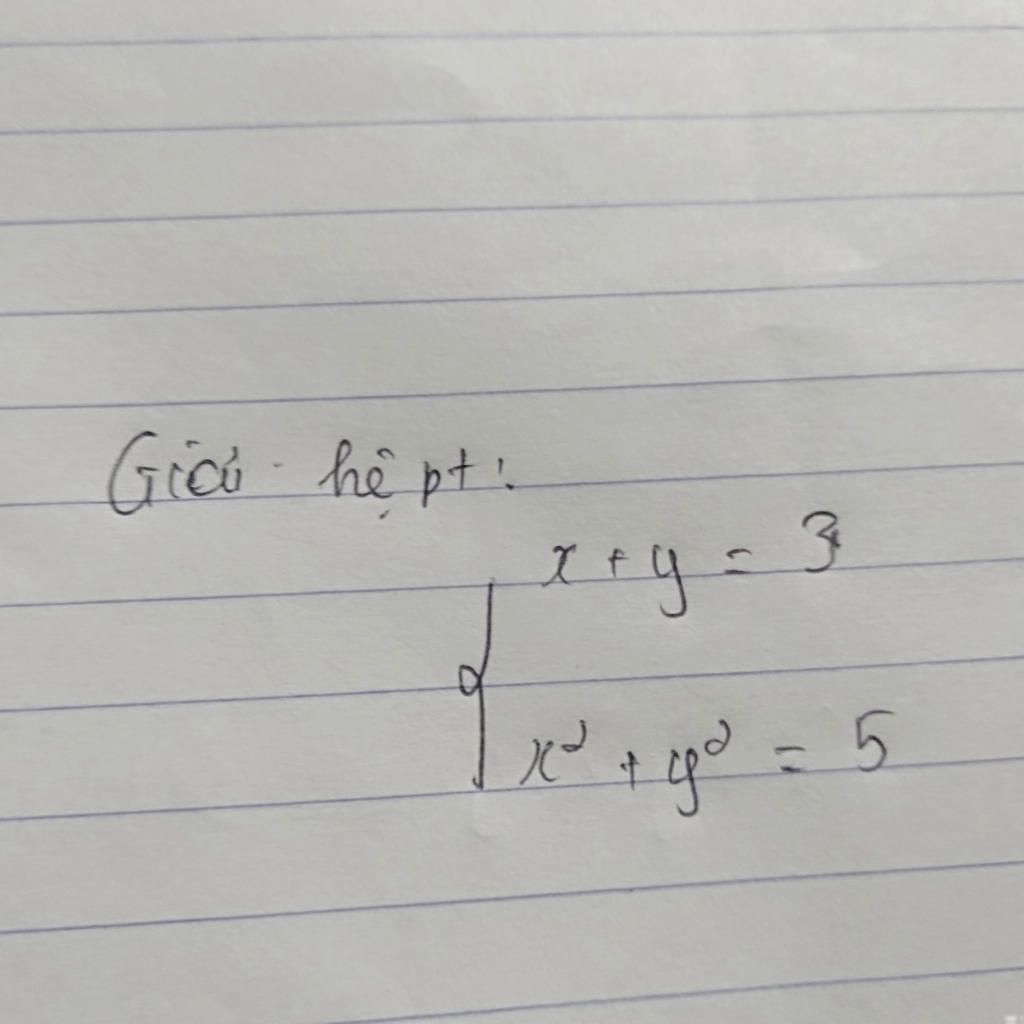 Giải hệ pt:
x + y = 3
x² + y² = 5